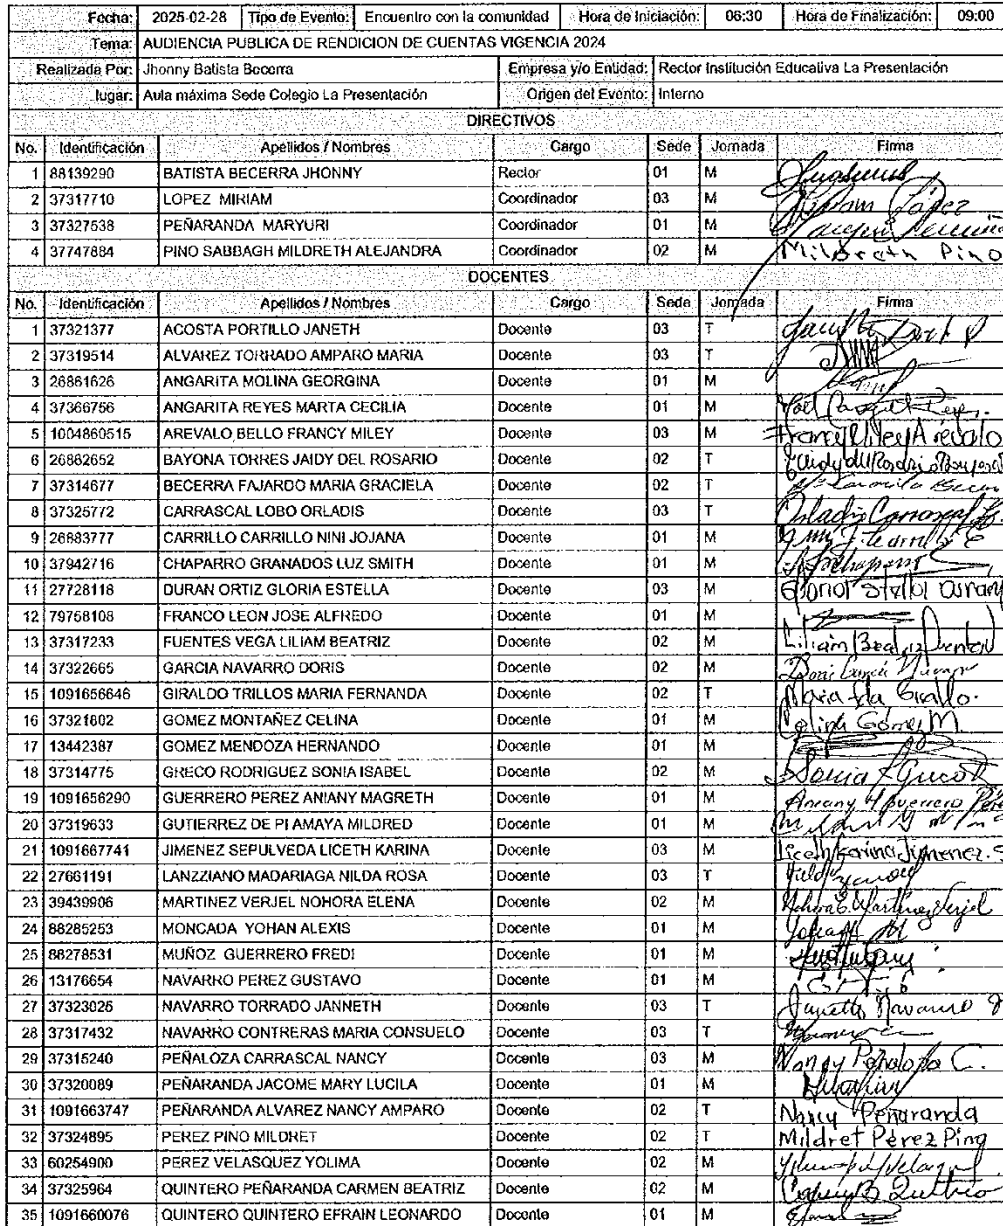 Fecha: 2025-02-28 Tipo de Evento: Encuentro con la comunidad Hora de Iniciación: 06:30 Hora de Finalización: 09:00
Tema: AUDIENCIA PUBLICA DE RENDICION DE CUENTAS VIGENCIA 2024
Realizada Por: Jhonny Batista Becerra Empresa y/o Entidad: Rector Institución Educativa La Presentación
lugar: Aula máxima Sede Colegio La Presentación Origen del Evento: Interno
DIRECTIVOS
No. Identificación Apellidos / Nombres Cargo Sede Jornada Firma
1 88139290 BATISTA BECERRA JHONNY Rector 01 M
2 37317710 LOPEZ MIRIAM Coordinador 03 M Miriam López
3 37327538 PEÑARANDA MARYURI Coordinador 01 M
4 37747884 PINO SABBAGH MILDRETH ALEJANDRA Coordinador 02 M Mildreth Pino
DOCENTES
No. Identificación Apellidos / Nombres Cargo Sede Jornada Firma
1 37321377 ACOSTA PORTILLO JANETH Docente 03 T
2 37319514 ALVAREZ TORRADO AMPARO MARIA Docente 03 T
3 26861626 ANGARITA MOLINA GEORGINA Docente 01 M
4 37366756 ANGARITA REYES MARTA CECILIA Docente 01 M
5 1004860515 AREVALO BELLO FRANCY MILEY Docente 03 M Francy Miley Arevalo
6 26862652 BAYONA TORRES JAIDY DEL ROSARIO Docente 02 T
7 37314677 BECERRA FAJARDO MARIA GRACIELA Docente 02 T
8 37325772 CARRASCAL LOBO ORLADIS Docente 03 T Orladis Carrascal L.
9 26883777 CARRILLO CARRILLO NINI JOJANA Docente 01 M
10 37942716 CHAPARRO GRANADOS LUZ SMITH Docente 01 M
11 27728118 DURAN ORTIZ GLORIA ESTELLA Docente 03 M
12 79758108 FRANCO LEON JOSE ALFREDO Docente 01 M
13 37317233 FUENTES VEGA LILIAM BEATRIZ Docente 02 M
14 37322665 GARCIA NAVARRO DORIS Docente 02 M
15 1091656646 GIRALDO TRILLOS MARIA FERNANDA Docente 02 T
16 37321802 GOMEZ MONTAÑEZ CELINA Docente 01 M Celina Gómez M
17 13442387 GOMEZ MENDOZA HERNANDO Docente 01 M
18 37314775 GRECO RODRIGUEZ SONIA ISABEL Docente 02 M
19 1091656290 GUERRERO PEREZ ANIANY MAGRETH Docente 01 M
20 37319633 GUTIERREZ DE PI AMAYA MILDRED Docente 01 M
21 1091667741 JIMENEZ SEPULVEDA LICETH KARINA Docente 03 M Liceth Karina Jimenez. S
22 27661191 LANZZIANO MADARIAGA NILDA ROSA Docente 03 T
23 39439906 MARTINEZ VERJEL NOHORA ELENA Docente 02 M Nohora E. Martinez Verjel
24 88285253 MONCADA YOHAN ALEXIS Docente 01 M
25 88278531 MUÑOZ GUERRERO FREDI Docente 01 M
26 13176654 NAVARRO PEREZ GUSTAVO Docente 01 M
27 37323025 NAVARRO TORRADO JANNETH Docente 03 T
28 37317432 NAVARRO CONTRERAS MARIA CONSUELO Docente 03 T
29 37315240 PEÑALOZA CARRASCAL NANCY Docente 03 M Nancy Peñaloza C.
30 37320089 PEÑARANDA JACOME MARY LUCILA Docente 01 M
31 1091663747 PEÑARANDA ALVAREZ NANCY AMPARO Docente 02 T Nancy Peñaranda
32 37324895 PEREZ PINO MILDRET Docente 02 T Mildret Pérez Pino
33 60254900 PEREZ VELASQUEZ YOLIMA Docente 02 M
34 37325964 QUINTERO PEÑARANDA CARMEN BEATRIZ Docente 02 M
35 1091660076 QUINTERO QUINTERO EFRAIN LEONARDO Docente 01 M